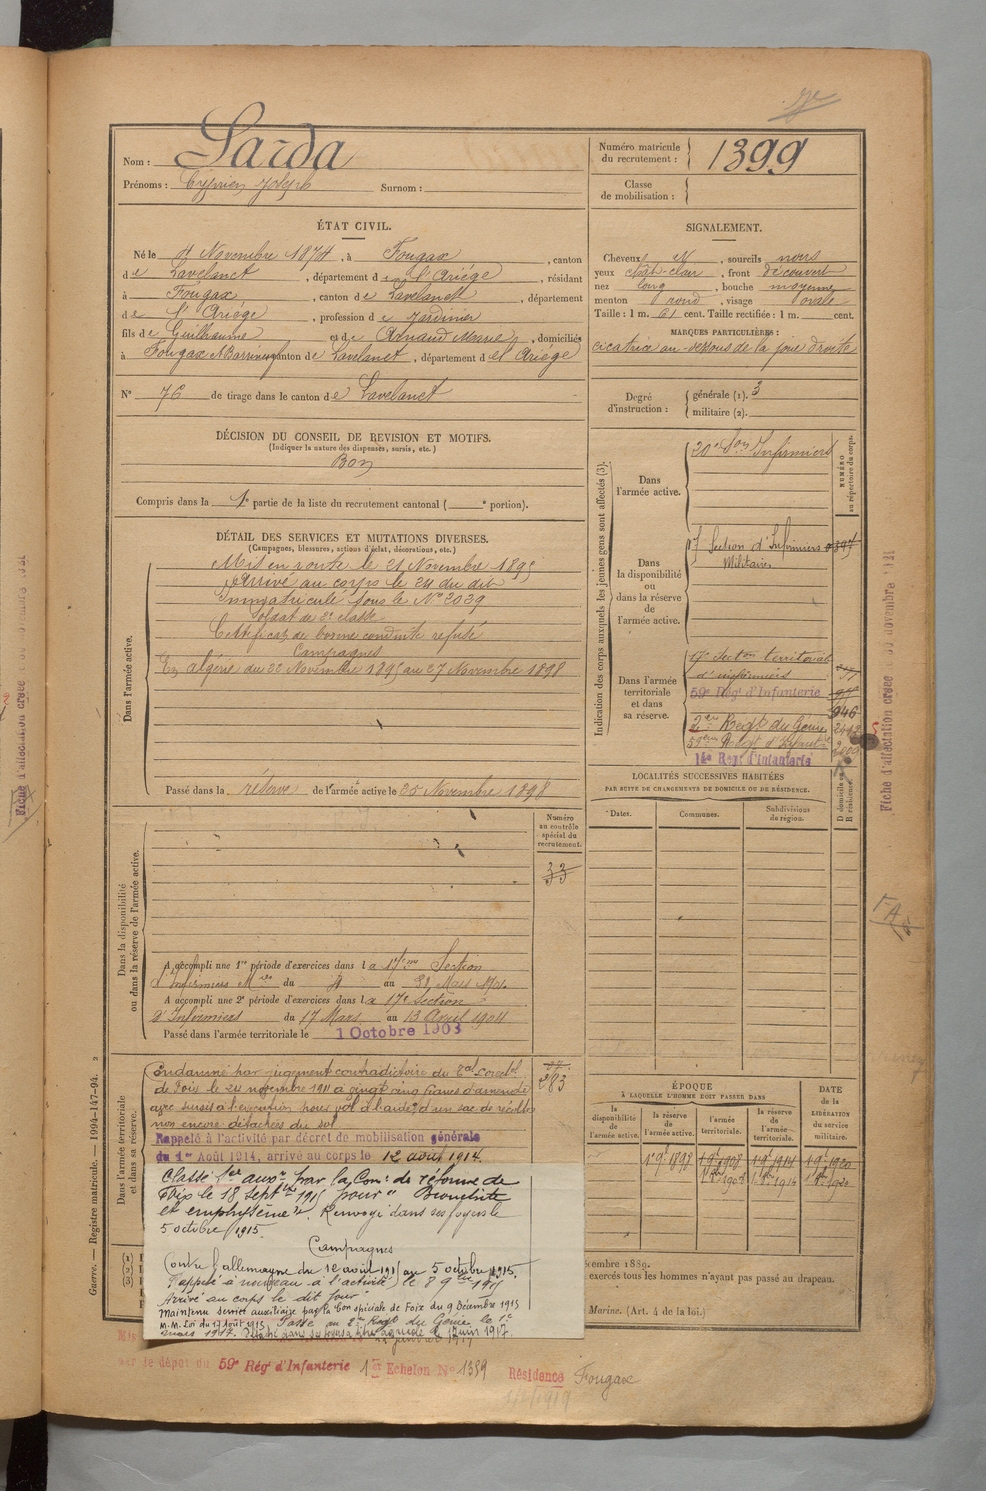 Nom : Sarda
Prénoms : Cyprien Joseph Surnom :
Numéro matricule du recrutement : 1399
Classe de mobilisation :
ÉTAT CIVIL.
Né le 4 Novembre 1874, à Fougax, canton
de Lavelanet, département de l'Ariége, résidant
à Fougax, canton de Lavelanet, département
de l'Ariége, profession de Jardinier
fils de Guilhaume et de Arnaud Marie, domiciliés
à Fougax et Barrineuf canton de Lavelanet, département de l'Ariége
N° 76 de tirage dans le canton de Lavelanet
SIGNALEMENT.
Cheveux N, sourcils noirs
yeux chât-clair, front découvert
nez long, bouche moyenne
menton rond, visage ovale
Taille : 1 m. 61 cent. Taille rectifiée : 1 m. cent.
MARQUES PARTICULIÈRES :
cicatrice au-dessous de la joue droite
Degré d'instruction : générale (1). 3
militaire (2).
DÉCISION DU CONSEIL DE REVISION ET MOTIFS.
(Indiquer la nature des dispenses, sursis, etc.)
Bon
Compris dans la 1e partie de la liste du recrutement cantonal ( e portion).
DÉTAIL DES SERVICES ET MUTATIONS DIVERSES.
(Campagnes, blessures, actions d'éclat, décorations, etc.)
Dans l'armée active.
Mis en route le 21 Novembre 1895
Arrivé au corps le 24 du dit
Immatriculé sous le N° 2039
Soldat de 2e classe
Certificat de bonne conduite refusé
Campagnes
En algérie du 22 Novembre 1895 au 27 Novembre 1898
Passé dans la réserve de l'armée active le 25 Novembre 1898
Indication des corps auxquels les jeunes gens sont affectés (3).
NUMÉRO au répertoire du corps.
Dans l'armée active.
20e Son Infirmiers
Dans la disponibilité ou dans la réserve de l'armée active.
17 Section d'Infirmiers
Militaires
Dans l'armée territoriale et dans sa réserve.
17e Section territorial
d'infirmiers
59e Rég' d'Infanterie
946
2me Regt du Génie
59eme Regt d'Infant
14e Reg' d'Infanterie
LOCALITÉS SUCCESSIVES HABITÉES
PAR SUITE DE CHANGEMENTS DE DOMICILE OU DE RÉSIDENCE.
Dates. Communes. Subdivisions de région. D domicile ou R résidence.
Dans la disponibilité ou dans la réserve de l'armée active.
Numéro au contrôle spécial du recrutement.
33
A accompli une 1re période d'exercices dans la 17me Section
d'Infirmiers Mres du 4 au 31 Mars 1901
A accompli une 2e période d'exercices dans la 17e Section
d'Infirmiers du 17 Mars au 13 Avril 1904
Passé dans l'armée territoriale le 1 Octobre 1903
Dans l'armée territoriale et dans sa réserve.
283
Condamné par jugement contradictoire du Bal correctl
de Foix le 24 novembre 1911 à vingt cinq francs d'amende
avec sursis à l'exécution pour vol à l'aide d'un sac de récoltes
non encore détachées du sol
Rappelé à l'activité par décret de mobilisation générale
du 1er Août 1914, arrivé au corps le 12 août 1914.
Classé Ser auxre par la Com: de réforme de
Foix le 18 Septbre 1915 pour "Bronchite
et emphysème". Renvoyé dans ses foyers le
5 octobre 1915.
Campagnes
Contre l'allemagne du 12 août 1914 au 5 octobre 1915.
Rappelé à nouveau à l'activité le 8 9bre 1915
Arrivé au corps le dit jour
Maintenu service auxiliaire par la Con spéciale de Foix du 9 Décembre 1915
M.M. Loi du 17 Août 1915 Passé au 2e Regt du Génie le 1e
mars 1917.
ÉPOQUE
À LAQUELLE L'HOMME DOIT PASSER DANS
la disponibilité de l'armée active. la réserve de l'armée active. l'armée territoriale. la réserve de l'armée territoriale.
DATE de la LIBÉRATION du service militaire.
1 9e 1898 1 9e 1908 1 9e 1914 1 9e 1920
embre 1889.
exercés tous les hommes n'ayant pas passé au drapeau.
Marine. (Art. 4 de la loi.)
dépôt du 59e Rég' d'Infanterie 1er Echelon N° 1399 Résidence Fougax
Guerre. — Registre matricule. — 1994-147-94.
Fiche d'affectation créée